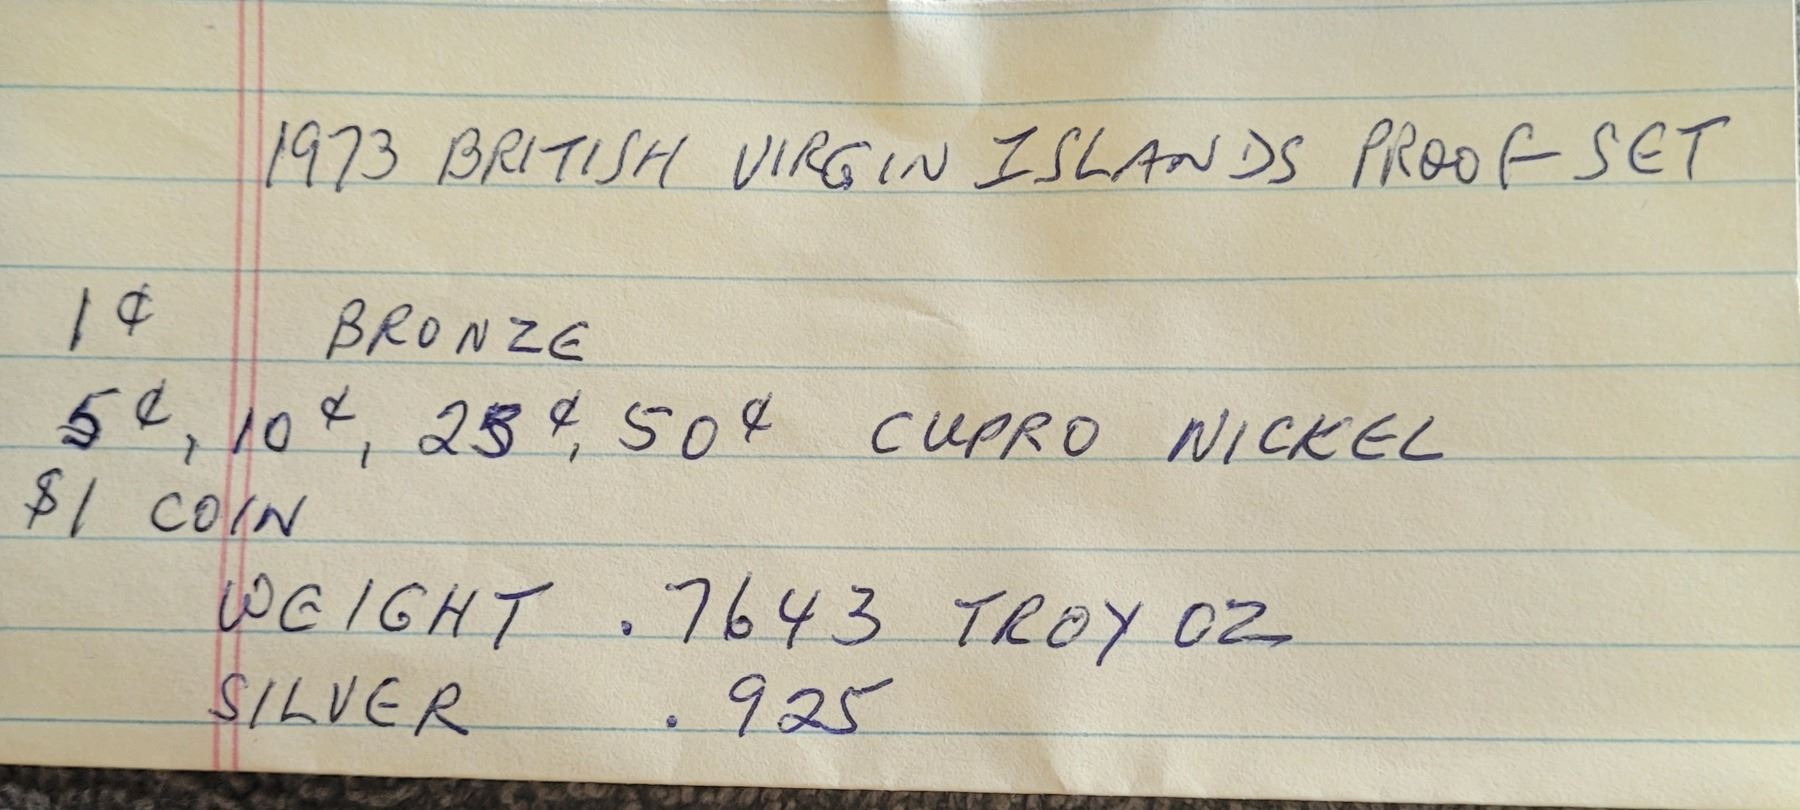 1973 BRITISH VIRGIN ISLANDS PROOF SET
1¢ BRONZE
5¢, 10¢, 25¢, 50¢ CUPRO NICKEL
$1 COIN
WEIGHT .7643 TROY OZ
SILVER .925